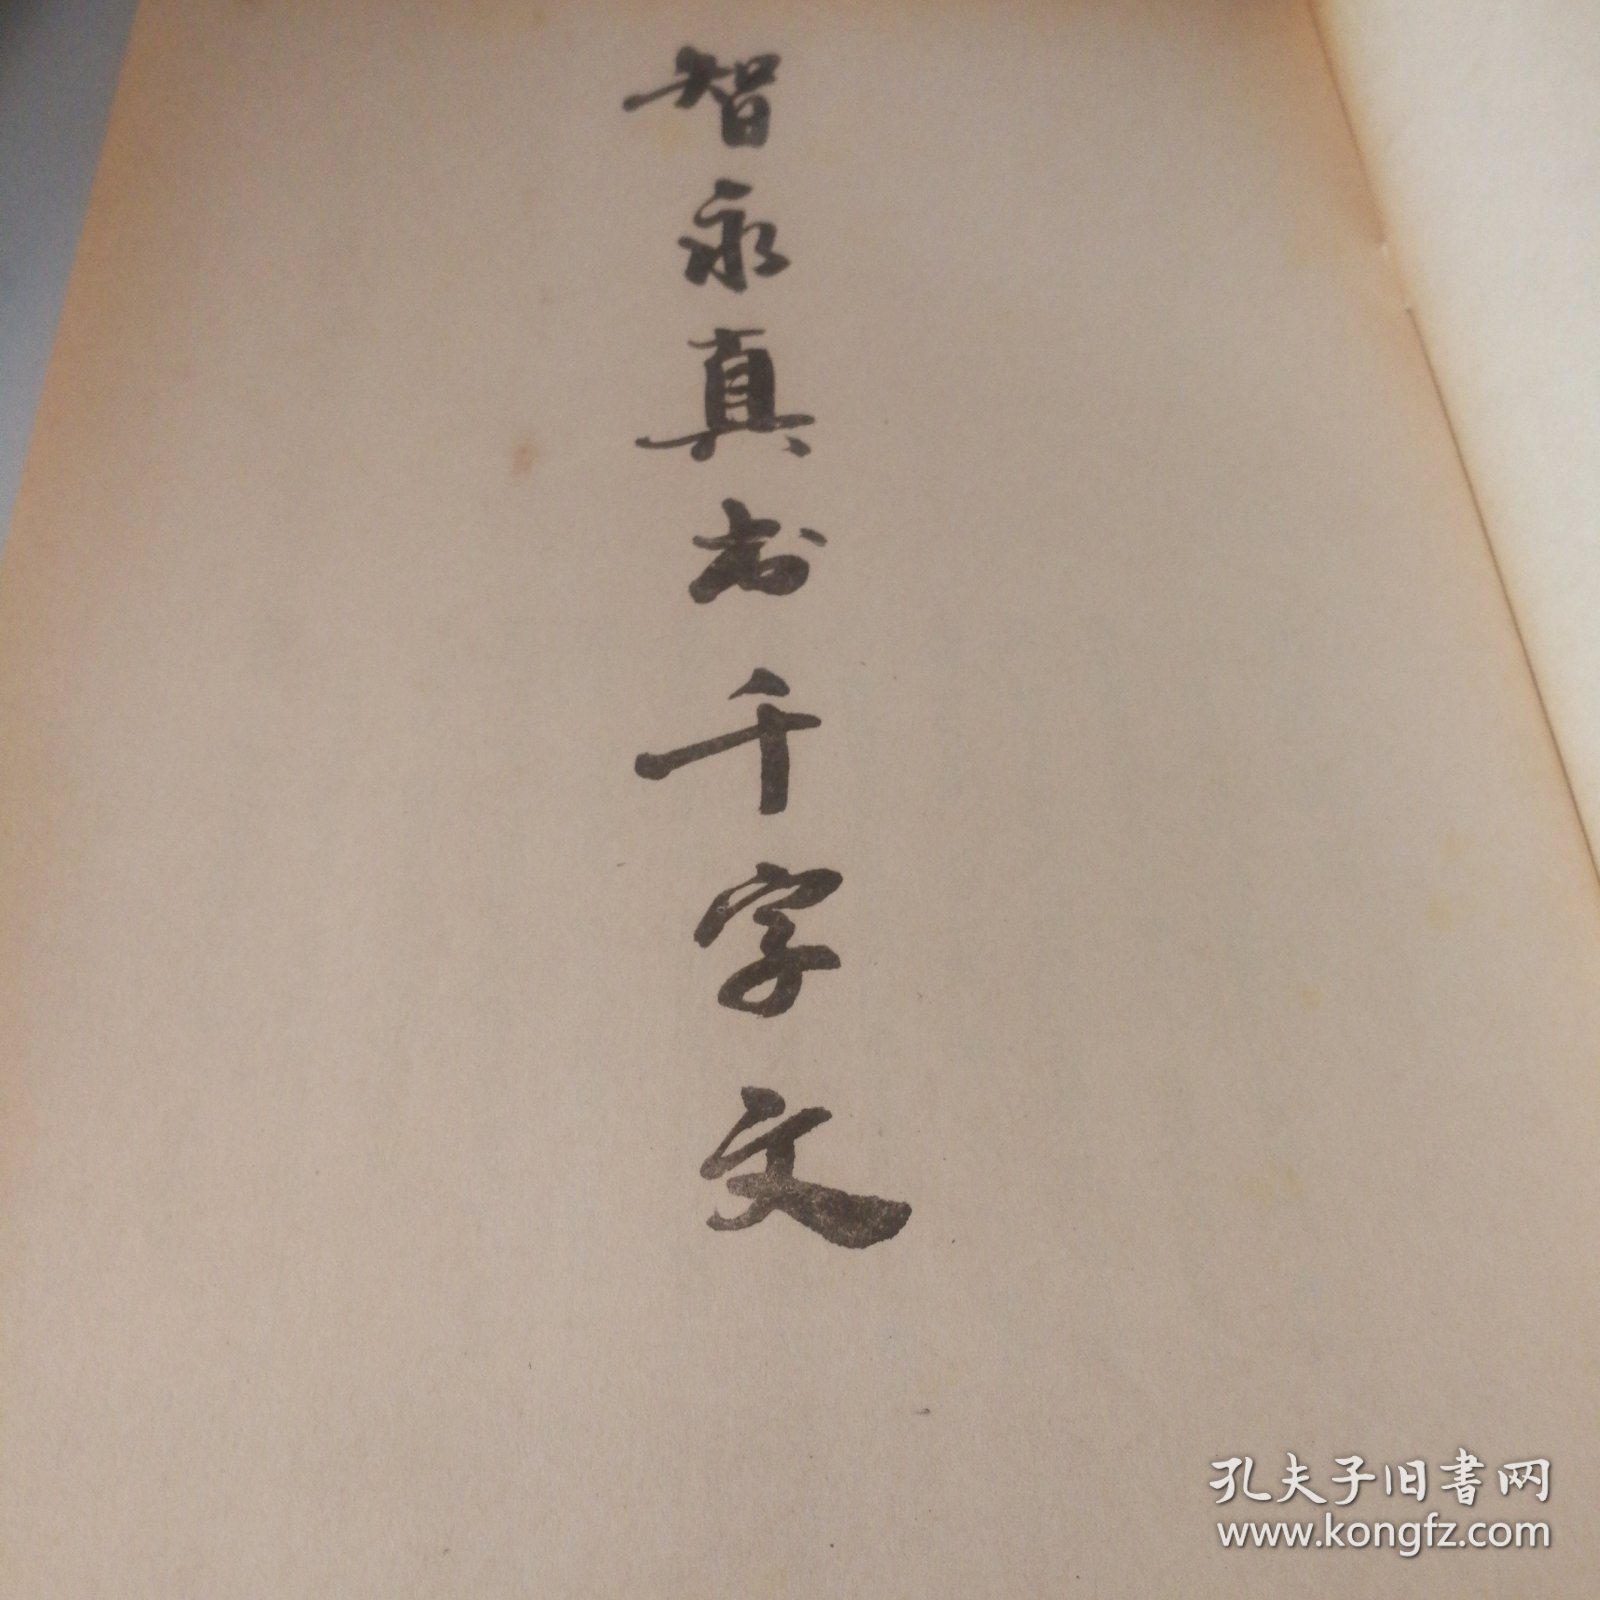 智永真书千字文
孔夫子旧书网
www.kongfz.com